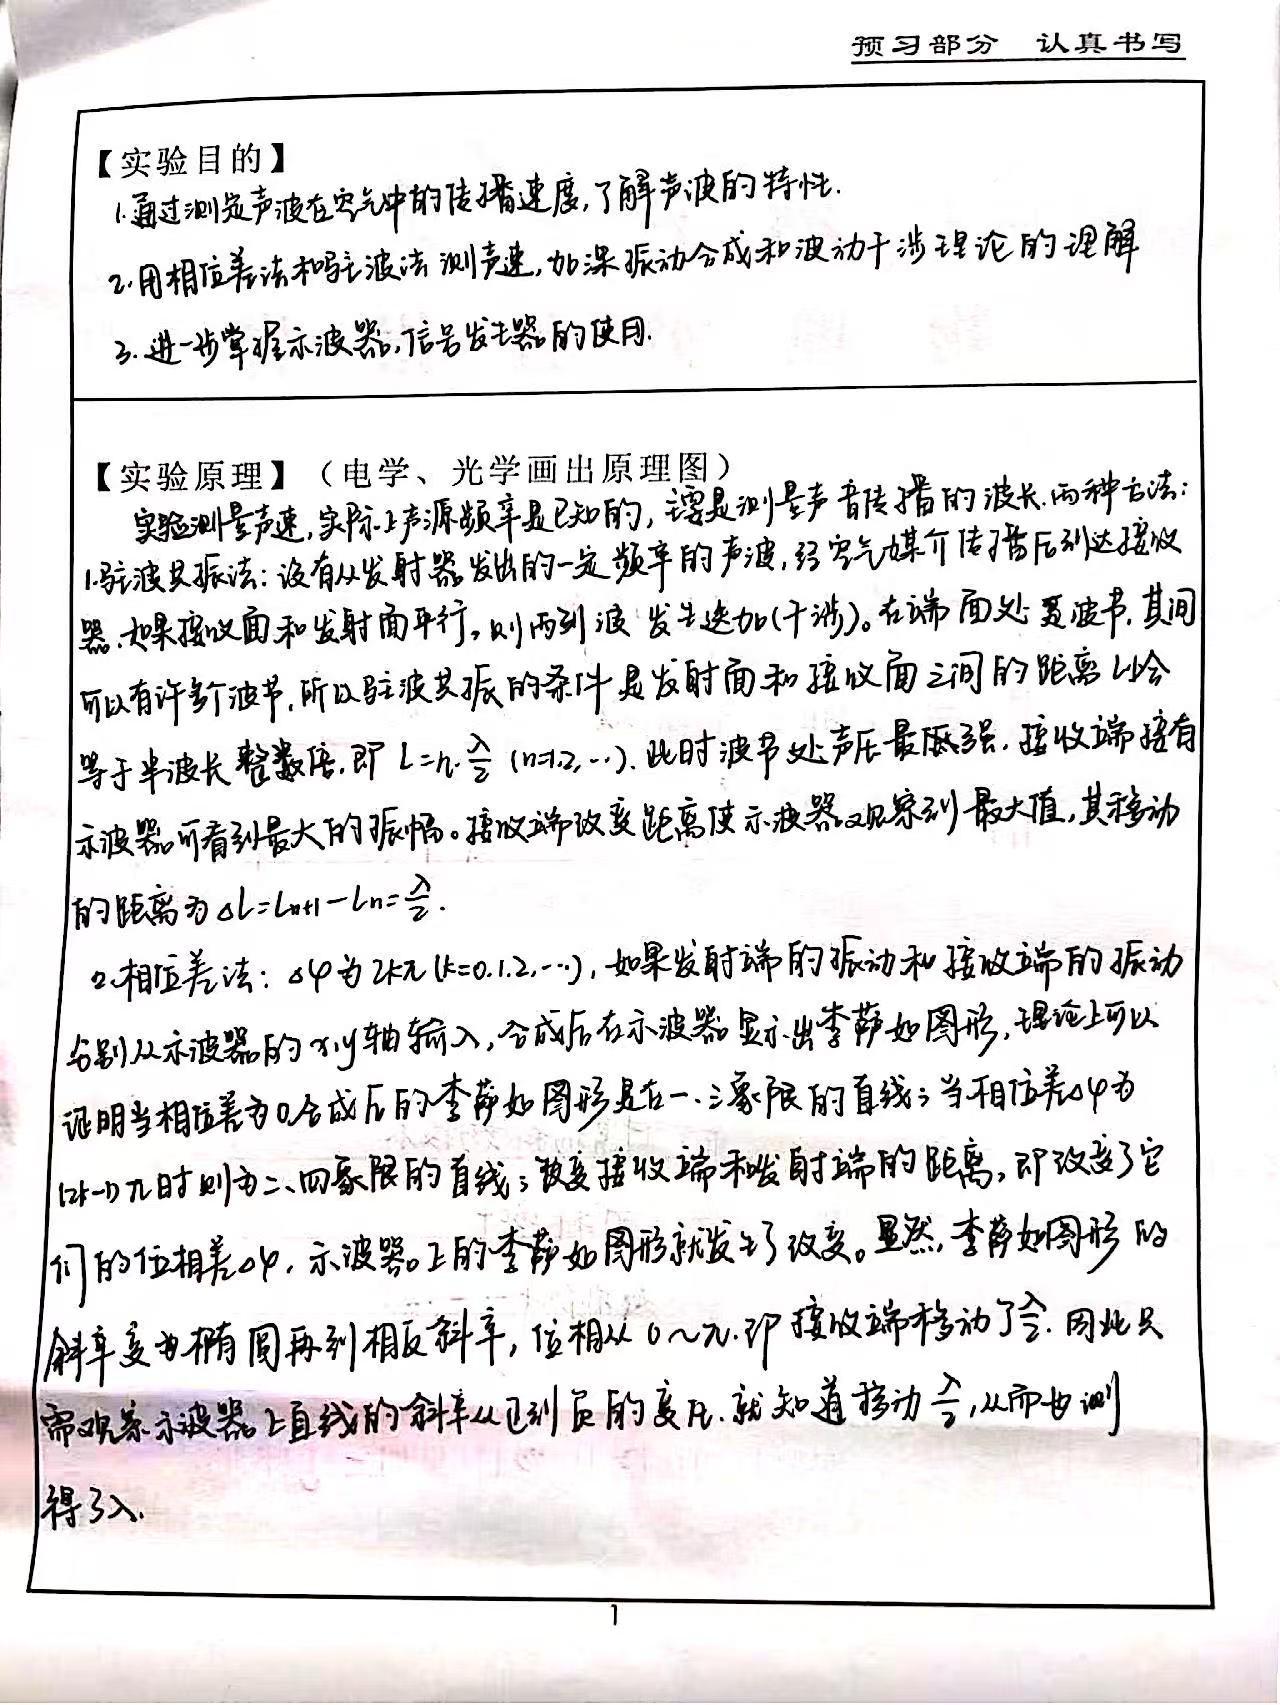 预习部分 认真书写
【实验目的】
1.通过测定声波在空气中的传播速度,了解声波的特性.
2.用相位差法和驻波法测声速,加深振动合成和波动干涉理论的理解
3.进一步掌握示波器,信号发生器的使用.
【实验原理】(电学、光学画出原理图)
实验测量声速,实际上声源频率是已知的,主要是测量声音传播的波长.两种方法:
1.驻波共振法:设有从发射器发出的一定频率的声波,经空气媒介传播后到达接收
器.如果接收面和发射面平行,则两列波发生迭加(干涉)。在端面处是波节,其间
可以有许多个波节,所以驻波共振的条件是发射面和接收面之间的距离L恰会
等于半波长整数倍,即 L=n·λ/2 (n=1.2,…).此时波节处声压最强.接收端接有
示波器可看到最大的振幅。接收端改变距离使示波器观察到最大值,其移动
的距离为ΔL=Ln+1-Ln=λ/2.
2.相位差法:Δφ为2kπ(k=0.1.2,…),如果发射端的振动和接收端的振动
分别从示波器的x,y轴输入,合成后在示波器显示出李萨如图形,理论上可以
证明当相位差为0,合成后的李萨如图形是在一、三象限的直线;当相位差Δφ为
(2k-1)π时则为二、四象限的直线;改变接收端和发射端的距离,即改变了它
们的位相差Δφ,示波器上的李萨如图形就发生了改变。显然,李萨如图形的
斜率变为椭圆再到相反斜率,位相从0~π.即接收端移动了λ/2.因此只
需观察示波器上直线的斜率从正到负的变化.就知道移动λ/2,从而也测
得了λ.
1